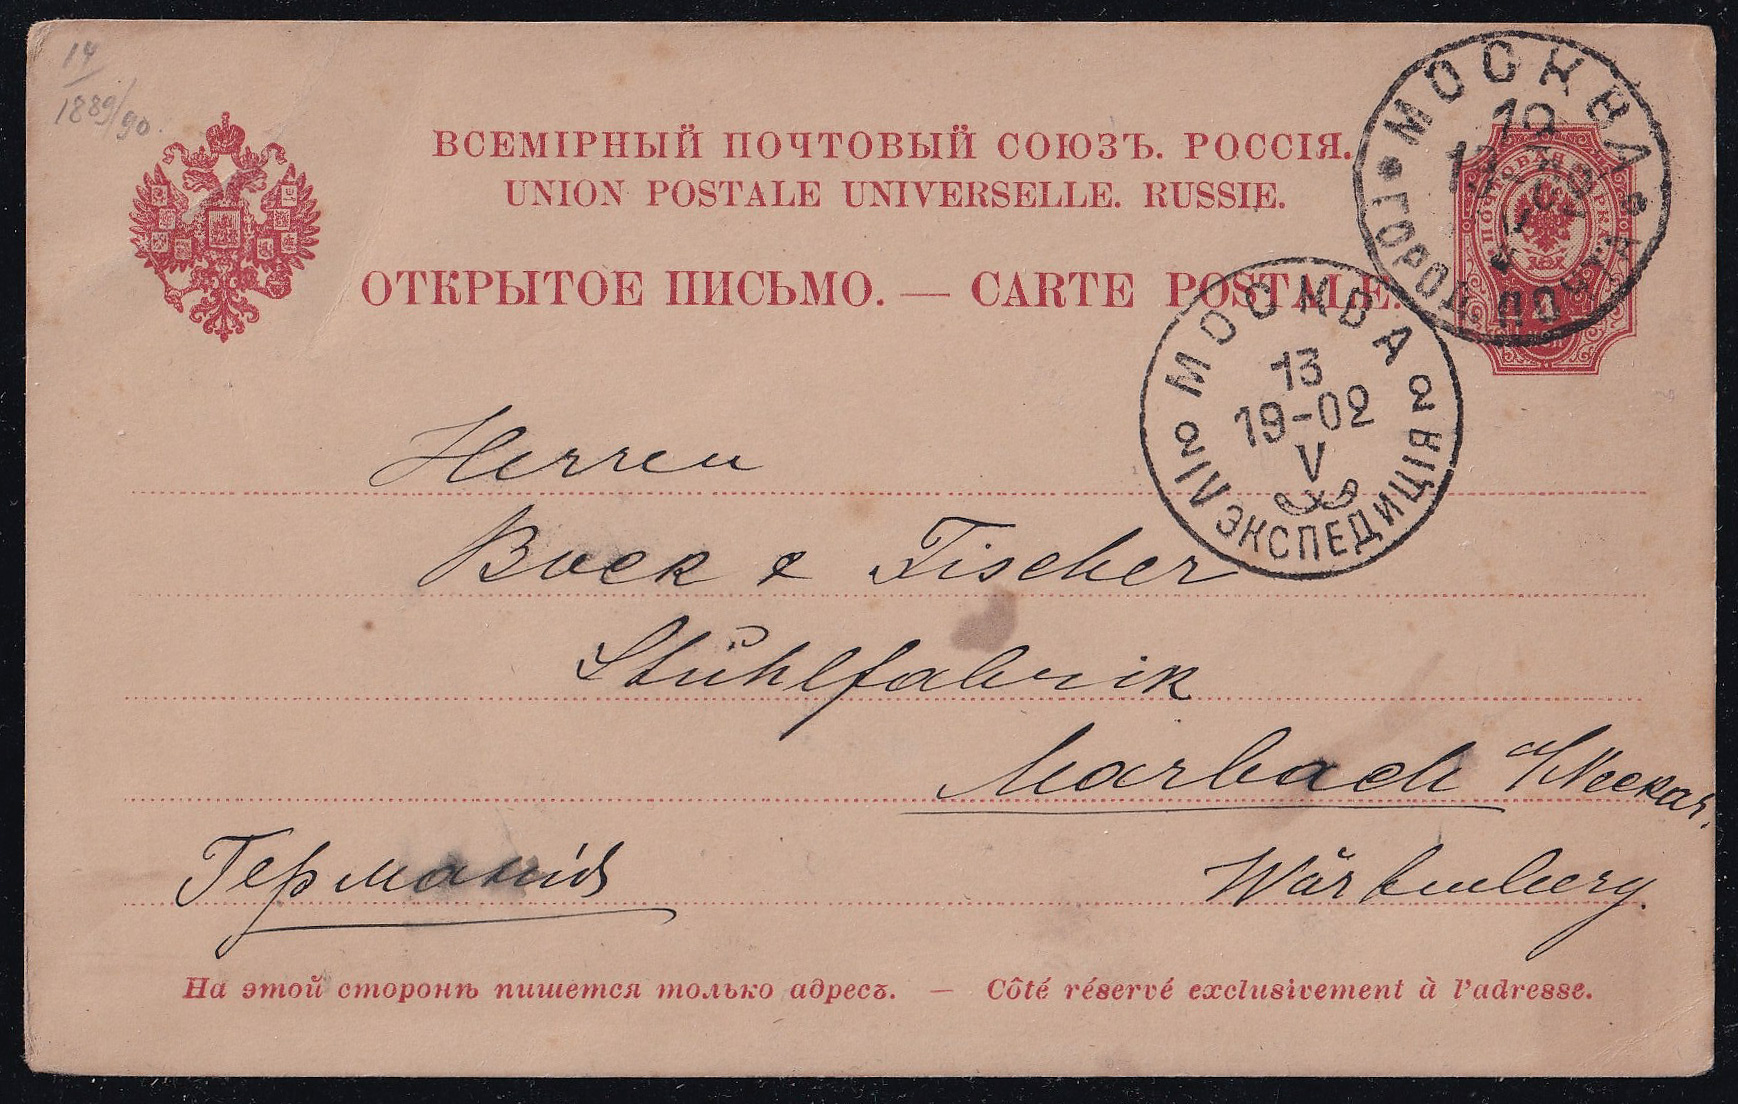 14
1889/90
ВСЕМІРНЫЙ ПОЧТОВЫЙ СОЮЗЪ. РОССІЯ.
UNION POSTALE UNIVERSELLE. RUSSIE.
ОТКРЫТОЕ ПИСЬМО. — CARTE POSTALE.
МОСКВА
10
ГОРОД. ПОЧТА
МОСКВА
13
19-02
V
2 IV ЭКСПЕДИЦІЯ 2
Herren
Bock & Fischer
Stŭhlfabrik
Marbach a/Neckar.
Германія
Würtemberg.
На этой сторонѣ пишется только адресъ. — Côté réservé exclusivement à l'adresse.